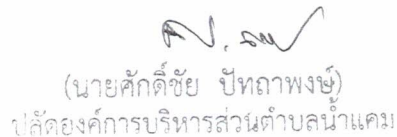 (นายศักดิ์ชัย ปัทถาพงษ์)
ปลัดองค์การบริหารส่วนตำบลน้ำแคม